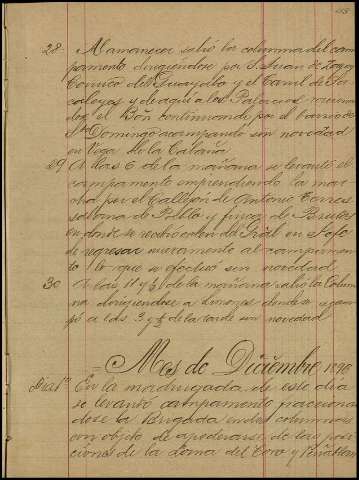 28 Al amanecer salió la columna del cam
pamento dirigiéndose por S. Juan de
Camino del Guayabo y el Carril de
y de aquí a los Palacios
el Bón continuando por el barrio de
Sto Domingo acampando sin novedad
en Vega de la Cabaña
29 A las 6 de la mañana se levantó el
campamento emprendiendo la mar
cha por el Callejon de Antonio Torres
sabana de y finca de
en donde se recibe orden del Gral en Jefe
de regresar nuevamente al campamento
lo que se efectuó sin novedad
30 A las 11 y ½ de la mañana salió la Colum
na dirigiendose a donde acam
pó a las 3 y ½ de la tarde sin novedad
= Mes de Diciembre 1896
Dia 1º En la madrugada de este dia
se levantó campamento fraccionan
dose la Brigada en dos columnas
con objeto de apoderarse de las posi
ciones de la Loma del Toro y Peña Blan